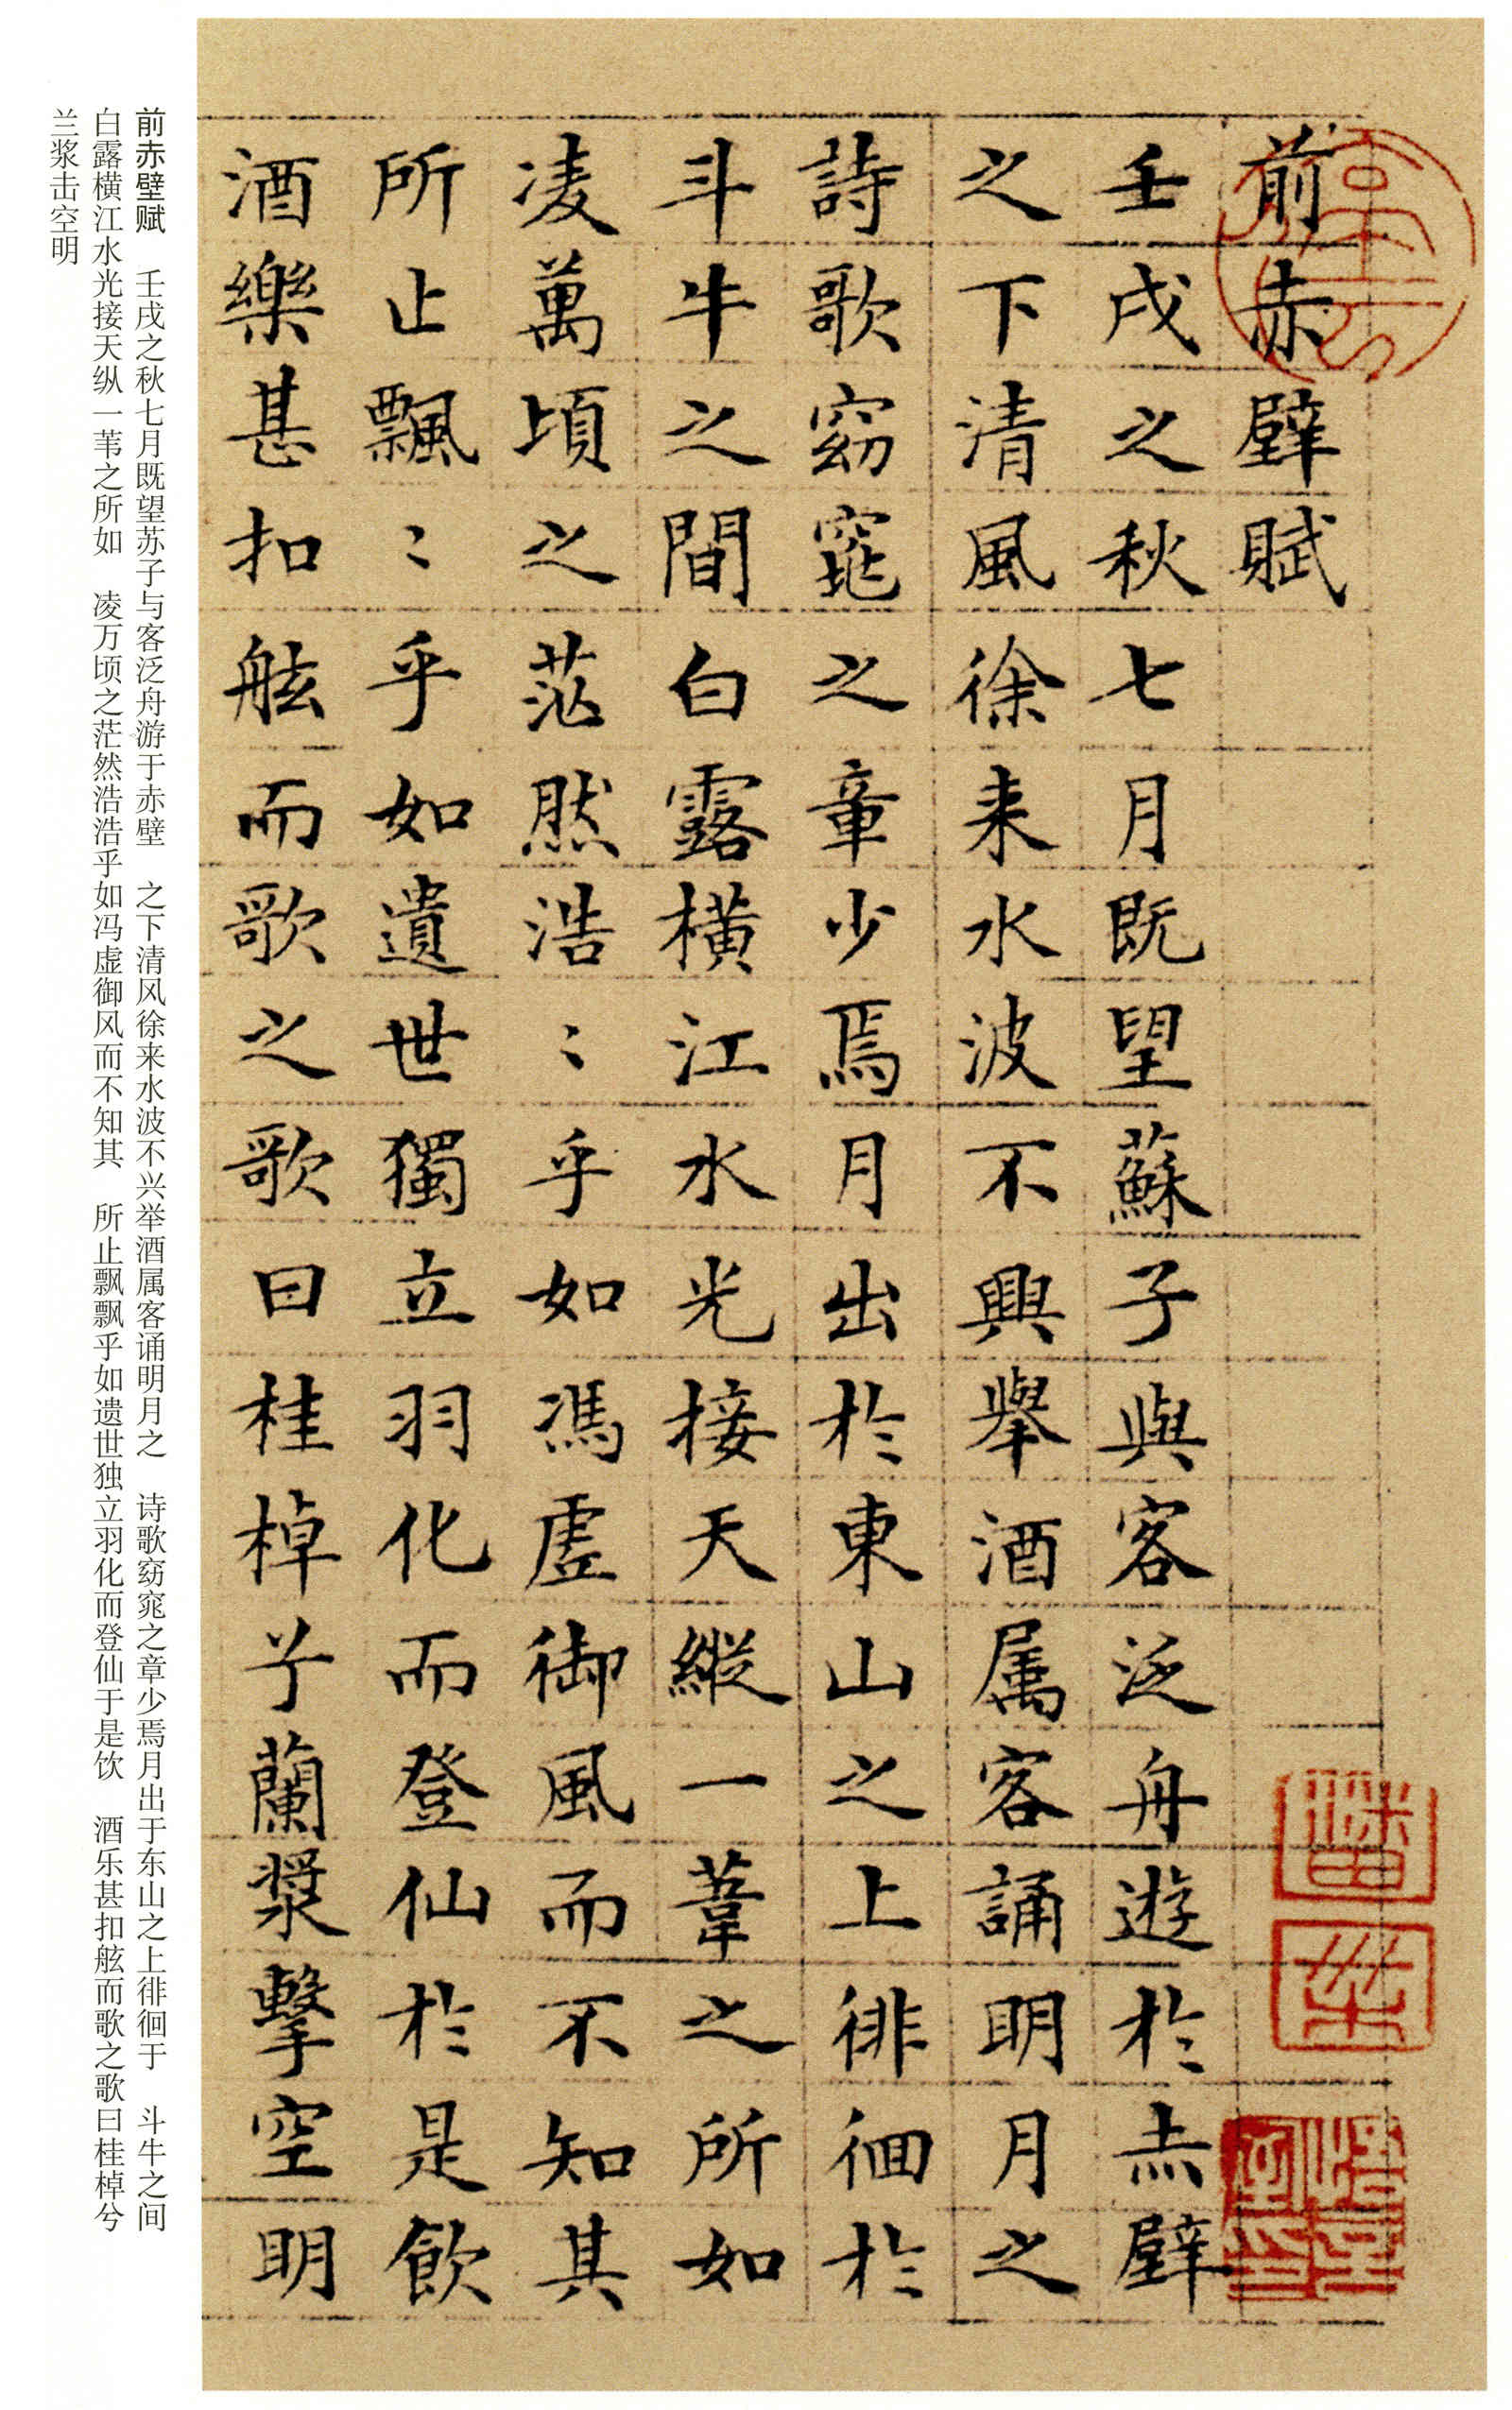 前赤壁賦
壬戌之秋七月既望蘇子與客泛舟遊於赤壁
之下清風徐来水波不興舉酒属客誦明月之
詩歌窈窕之章少焉月出於東山之上徘徊於
斗牛之間白露横江水光接天縱一葦之所如
凌萬頃之茫然浩〻乎如馮虛御風而不知其
所止飄〻乎如遺世獨立羽化而登仙於是飲
酒樂甚扣舷而歌之歌曰桂棹兮蘭漿擊空明
前赤壁赋 壬戌之秋七月既望苏子与客泛舟游于赤壁 之下清风徐来水波不兴举酒属客诵明月之 诗歌窈窕之章少焉月出于东山之上徘徊于 斗牛之间
白露横江水光接天纵一苇之所如 凌万顷之茫然浩浩乎如冯虚御风而不知其 所止飘飘乎如遗世独立羽化而登仙于是饮 酒乐甚扣舷而歌之歌曰桂棹兮
兰浆击空明